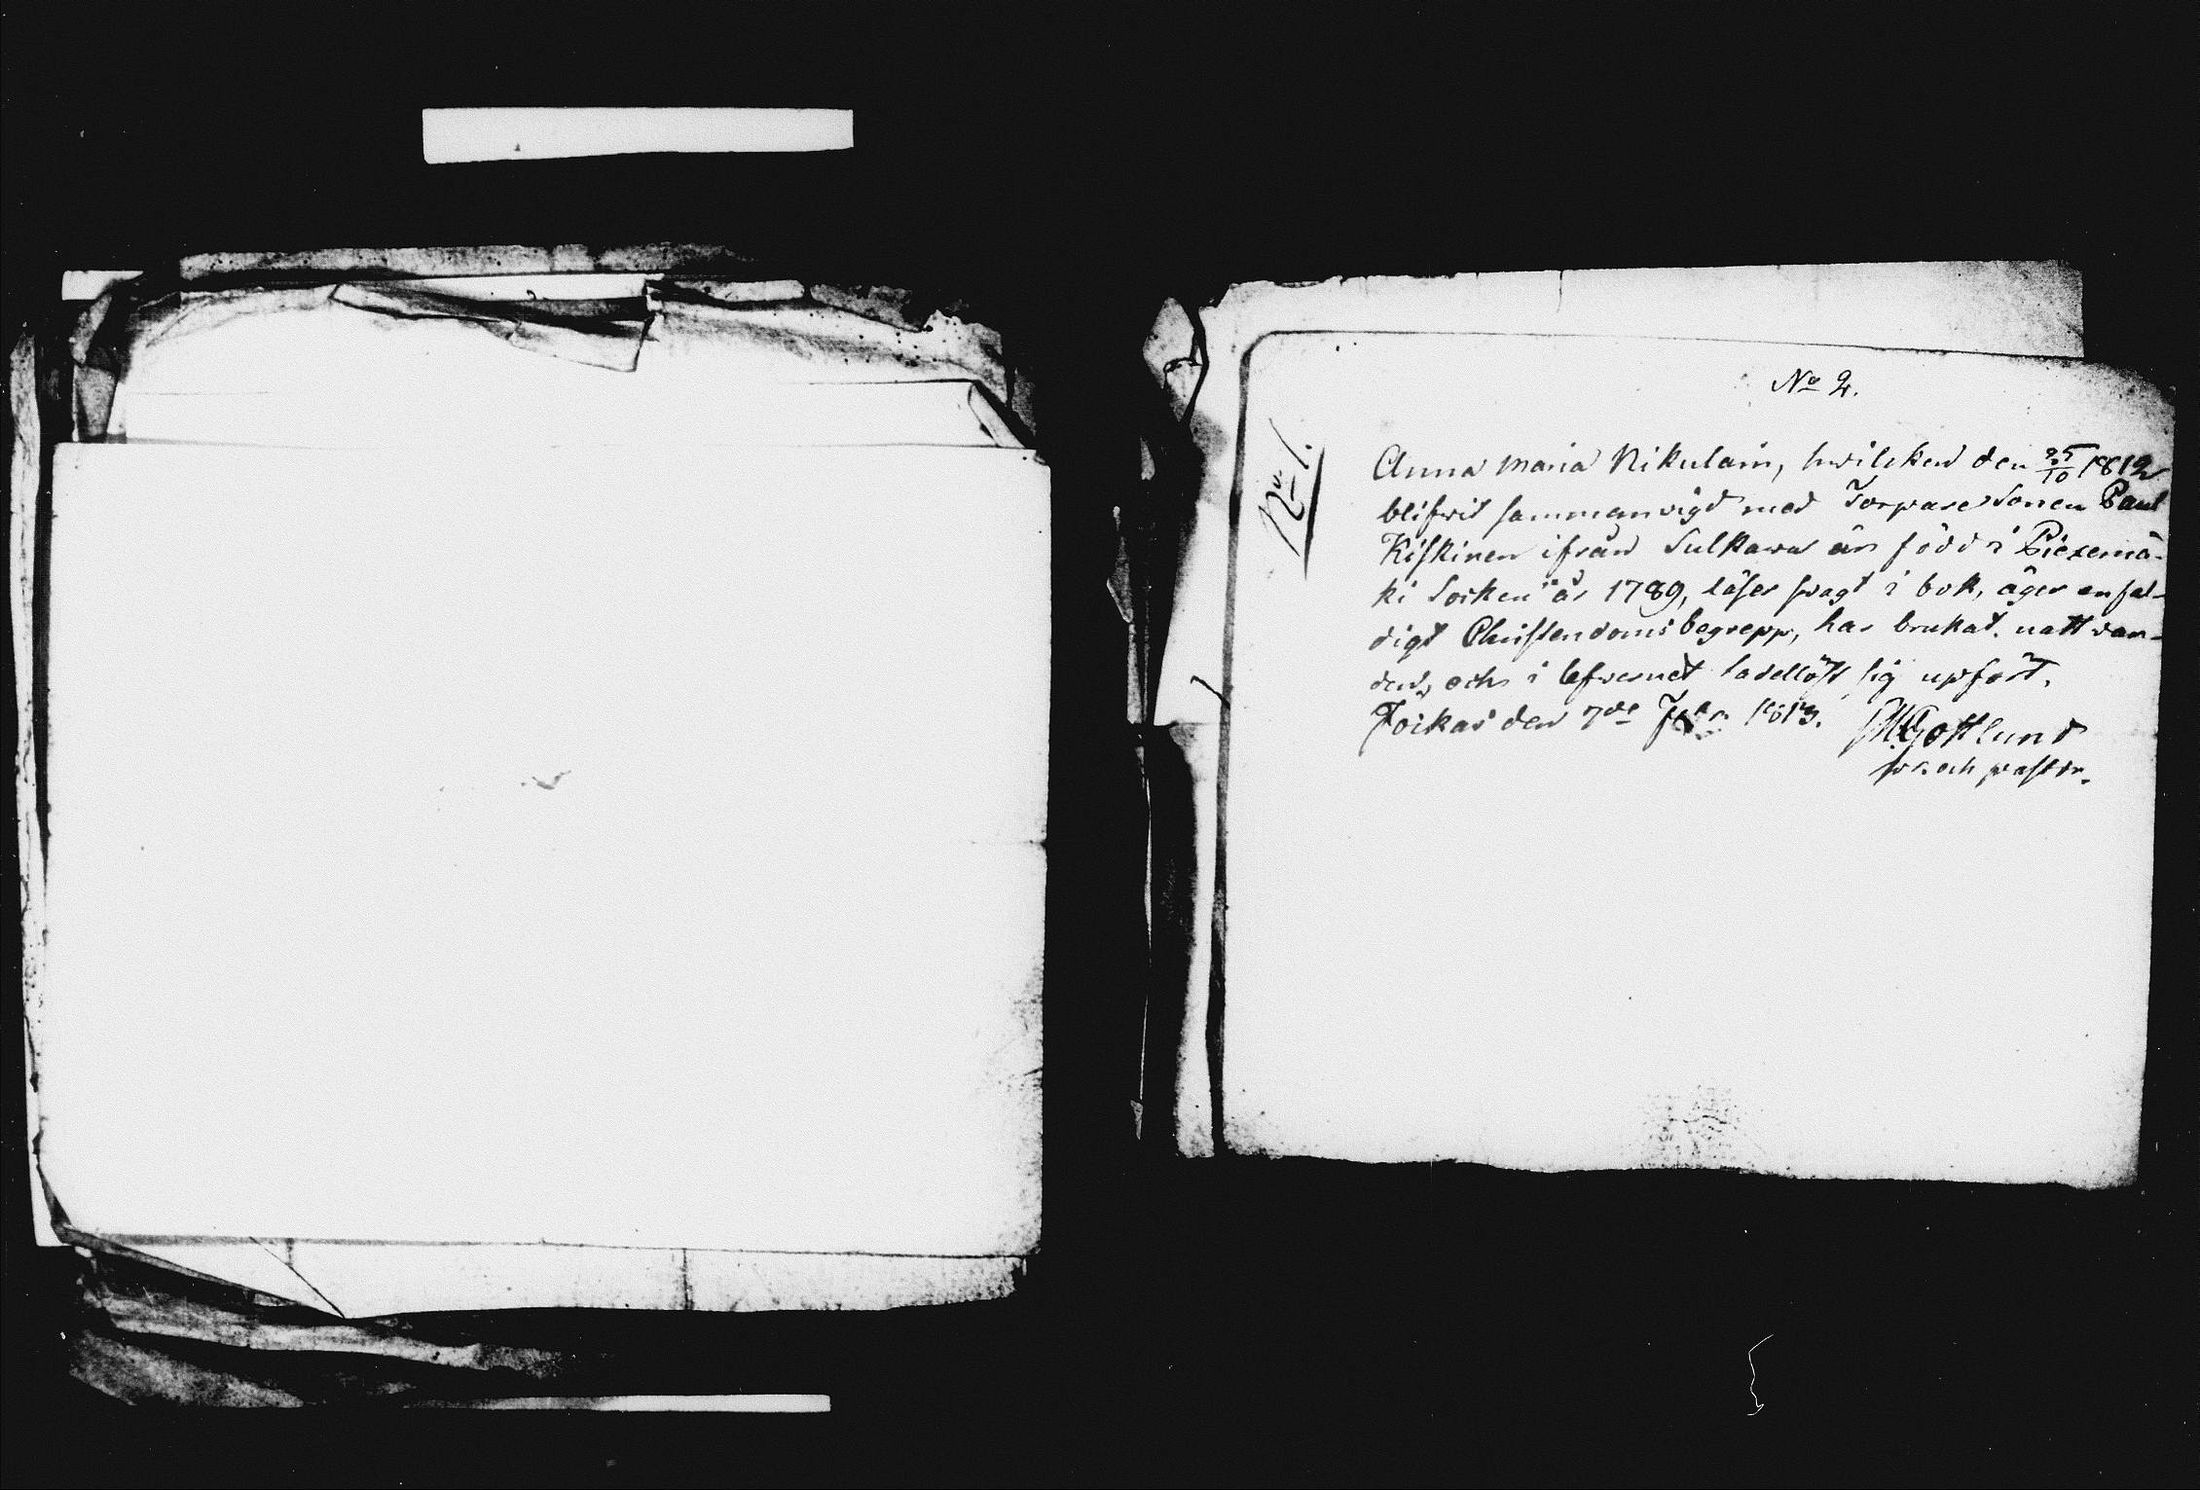 No 2.
No 1.
Anna Maria Nikulain, hwilcken den 25/10 1812
blifwit sammanvigd med Torpare Sonen Paul
Kiskinen ifrån Sulkawa är född i Piexemä-
ki Socken år 1789, läser swagt i bok, äger enfal-
digt Christendoms begrepp, har brukat nattvar-
den, och i lefvernet ladellöst sig upfört.
Joikas den 7de 1813. Gottlund
pr. och pastor.